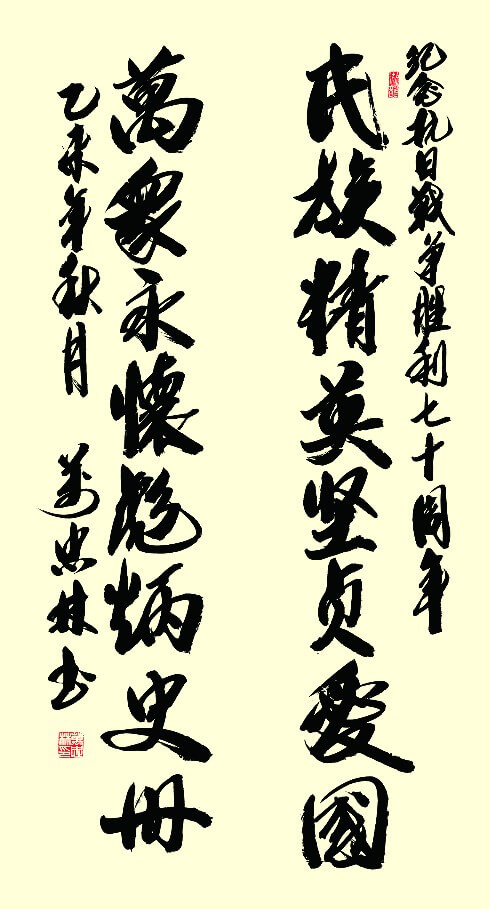 纪念抗日战争胜利七十周年
民族精英坚贞爱國
萬眾永懷彪炳史册
乙未年秋月 万忠林书